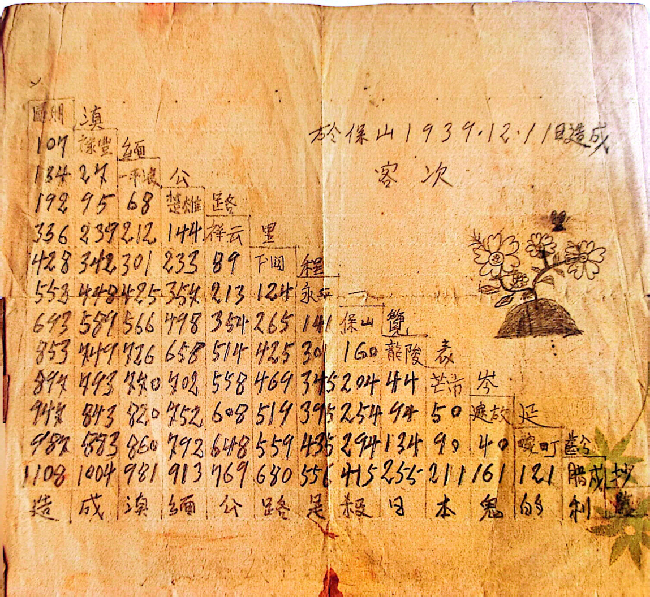 於保山1939.12.11日造成
客次
昆明 滇
107 祿豐 緬
134 27 一平浪 公
192 95 68 楚雄 路
336 239 212 144 祥云 里
428 342 301 233 89 下関 程
553 448 425 354 213 124 永平 一
693 589 566 498 354 265 141 保山 覽
853 749 726 658 514 425 301 160 龍陵 表
897 793 770 702 558 469 345 204 44 芒市 岑
947 843 820 752 608 519 395 254 94 50 遮放 延
987 883 860 792 648 559 435 294 134 90 40 畹町
1108 1004 981 913 769 680 556 415 255 211 161 121 腊戍 抄
造 成 滇 緬 公 路 是 殺 日 本 鬼 的 利